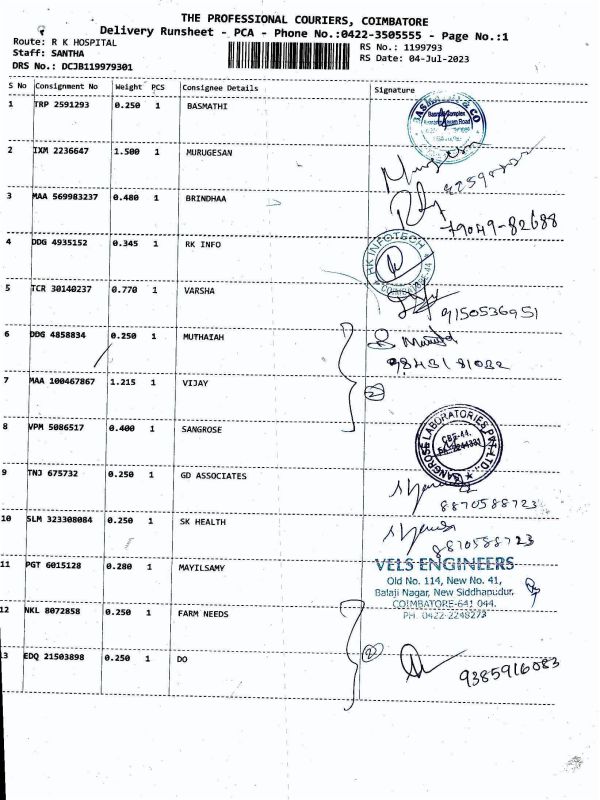 THE PROFESSIONAL COURIERS, COIMBATORE
Delivery Runsheet - PCA - Phone No.:0422-3505555 - Page No.:1
Route: R K HOSPITAL
Staff: SANTHA
DRS No.: DCJB119979301
RS No.: 1199793
RS Date: 04-Jul-2023
S No Consignment No Weight PCS Consignee Details Signature
1 TRP 2591293 0.250 1 BASMATHI
2 IXM 2236647 1.500 1 MURUGESAN
3 MAA 569983237 0.480 1 BRINDHAA
79049-82688
4 DDG 4935152 0.345 1 RK INFO
RK INFOTECH
COIMBATORE-44
5 TCR 30140237 0.770 1 VARSHA
9150536951
6 DDG 4858834 0.250 1 MUTHAIAH
9843181032
7 MAA 100467867 1.215 1 VIJAY
2
8 VPM 5086517 0.400 1 SANGROSE
SANGROSE LABORATORIES PVT. LTD.
CBE-44.
9 TNJ 675732 0.250 1 GD ASSOCIATES
8870588723
10 SLM 323308084 0.250 1 SK HEALTH
8870588723
11 PGT 6015128 0.280 1 MAYILSAMY
VELS ENGINEERS
Old No. 114, New No. 41,
Balaji Nagar, New Siddhapudur,
COIMBATORE-641 044.
PH: 0422-2248273
12 NKL 8072858 0.250 1 FARM NEEDS
2
13 EDQ 21503898 0.250 1 DO
9385916083